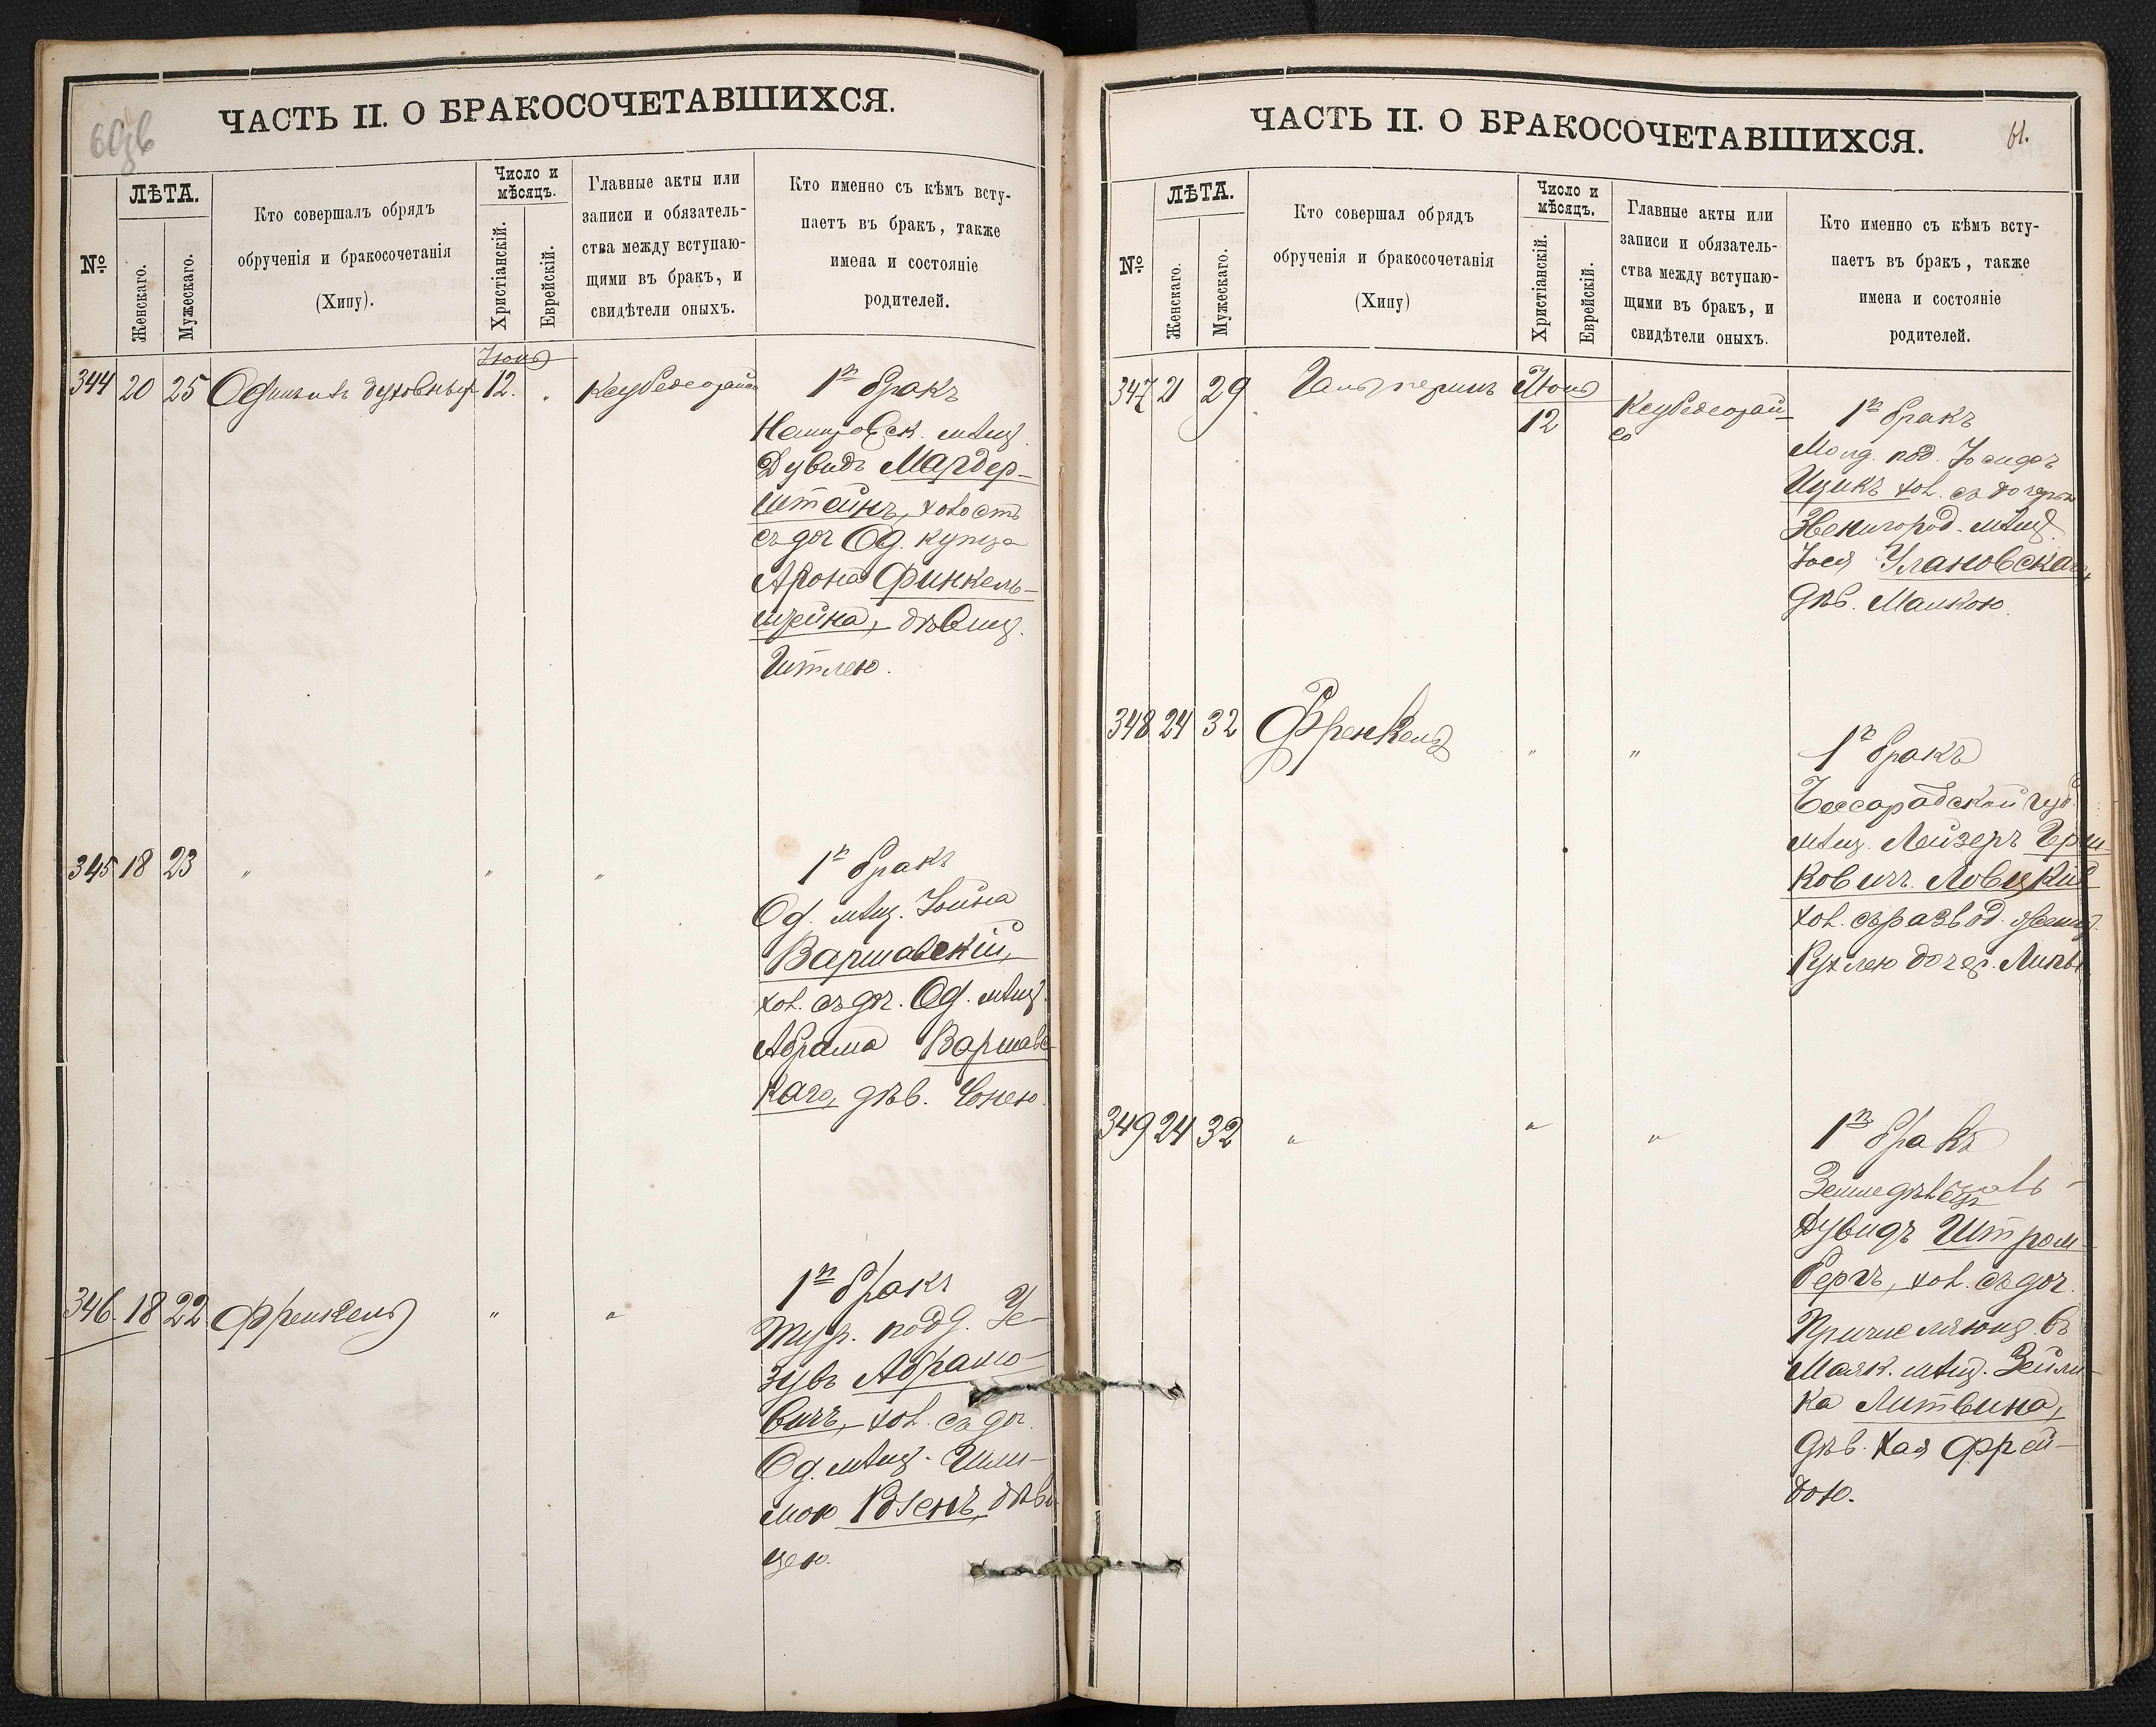 ЧАСТЬ II. О БРАКОСОЧЕТАВШИХСЯ.
№
ЛѢТА.
Женскаго.
Мужескаго.
Кто совершалъ обрядъ
обрученія и бракосочетанія
(Хипу).
Число и
мѣсяцъ.
Христіанскій.
Еврейскій.
Главные акты или
записи и обязатель-
ства между вступаю-
щими въ бракъ, и
свидѣтели оныхъ.
Кто именно съ кѣмъ всту-
паетъ въ бракъ, также
имена и состояніе
родителей.
Іюнь
344 20 25 духовный 12.
1й бракъ
Немировск. мѣщ.
Дувидъ Мардер-
штейнъ, холость
съ доч Од. купца
Арона Финкель-
штейна, дѣвиц.
Итлею.
345 18 23 " " "
1й бракъ
Од. мѣщ. Іойна
Варшавскій,
хол. съ доч. Од. мѣщ.
Абрама Варшавс-
каго, дѣв.
346 18 22 Френкель " "
1й бракъ
Тур. подд. Зе-
Абрамо-
вичъ, хол. съ доч.
Од. мѣщ.
Розенъ, дѣви-
цею.
ЧАСТЬ II. О БРАКОСОЧЕТАВШИХСЯ.
61.
№
ЛѢТА.
Женскаго.
Мужескаго.
Кто совершал обрядъ
обрученія и бракосочетанія
(Хипу)
Число и
мѣсяцъ.
Христіанскій.
Еврейскій.
Главные акты или
записи и обязатель-
ства между вступаю-
щими въ бракъ, и
свидѣтели оныхъ.
Кто именно съ кѣмъ всту-
паетъ въ бракъ, также
имена и состояніе
родителей.
347 21 29 Гальперинъ Июнь
12
1й бракъ
Молд. под. Іосифъ
Ицикъ хол. съ дочерью
Звенигород. мѣщ.
Іося Улановскаго,
дѣв. Малкою.
348 24 32 Френкель " "
1й бракъ
Бессарабской губ.
мѣщ. Лейзеръ Герш-
ковичъ Ловецкій
хол. съ развод. женщ.
Рухлею дочер. Липы
349 24 32 " " "
1й бракъ
Дувидъ Штром-
бергъ, хол. съ доч.
Причисляющ. въ
Маяк. мѣщ. Зейли-
ка Литвина,
дѣв. Хая Фрей-
дою.